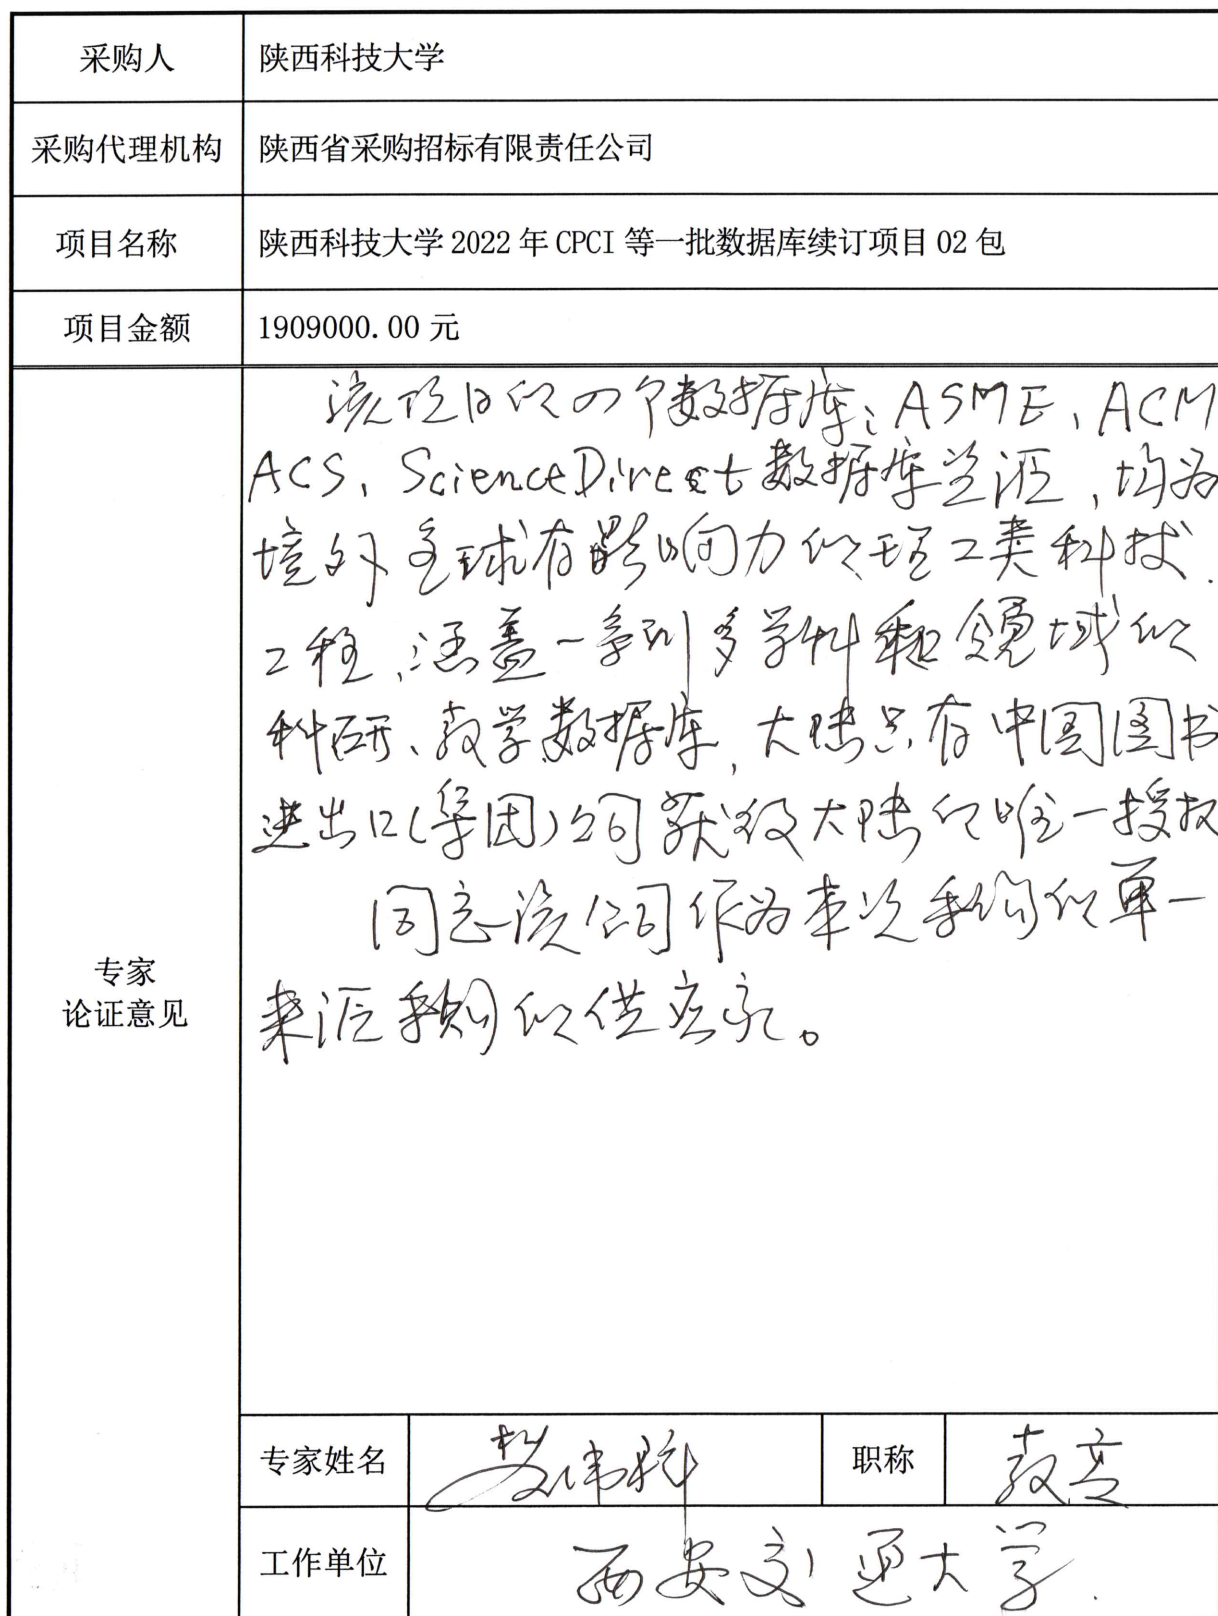 采购人 陕西科技大学
采购代理机构 陕西省采购招标有限责任公司
项目名称 陕西科技大学 2022 年 CPCI 等一批数据库续订项目 02 包
项目金额 1909000.00 元
该项目的四个数据库：ASME、ACM
ACS、ScienceDirect数据库资源，均为
境外全球有影响力的理工类科技、
工程，涵盖一系列多学科和领域的
科研、教学数据库，大陆只有中国图书
进出口(集团)公司获级大陆的唯一授权
同意该公司作为本次采购的单一
来源采购的供应商。
专家
论证意见
专家姓名 伟 职称 教高
工作单位 西安交通大学